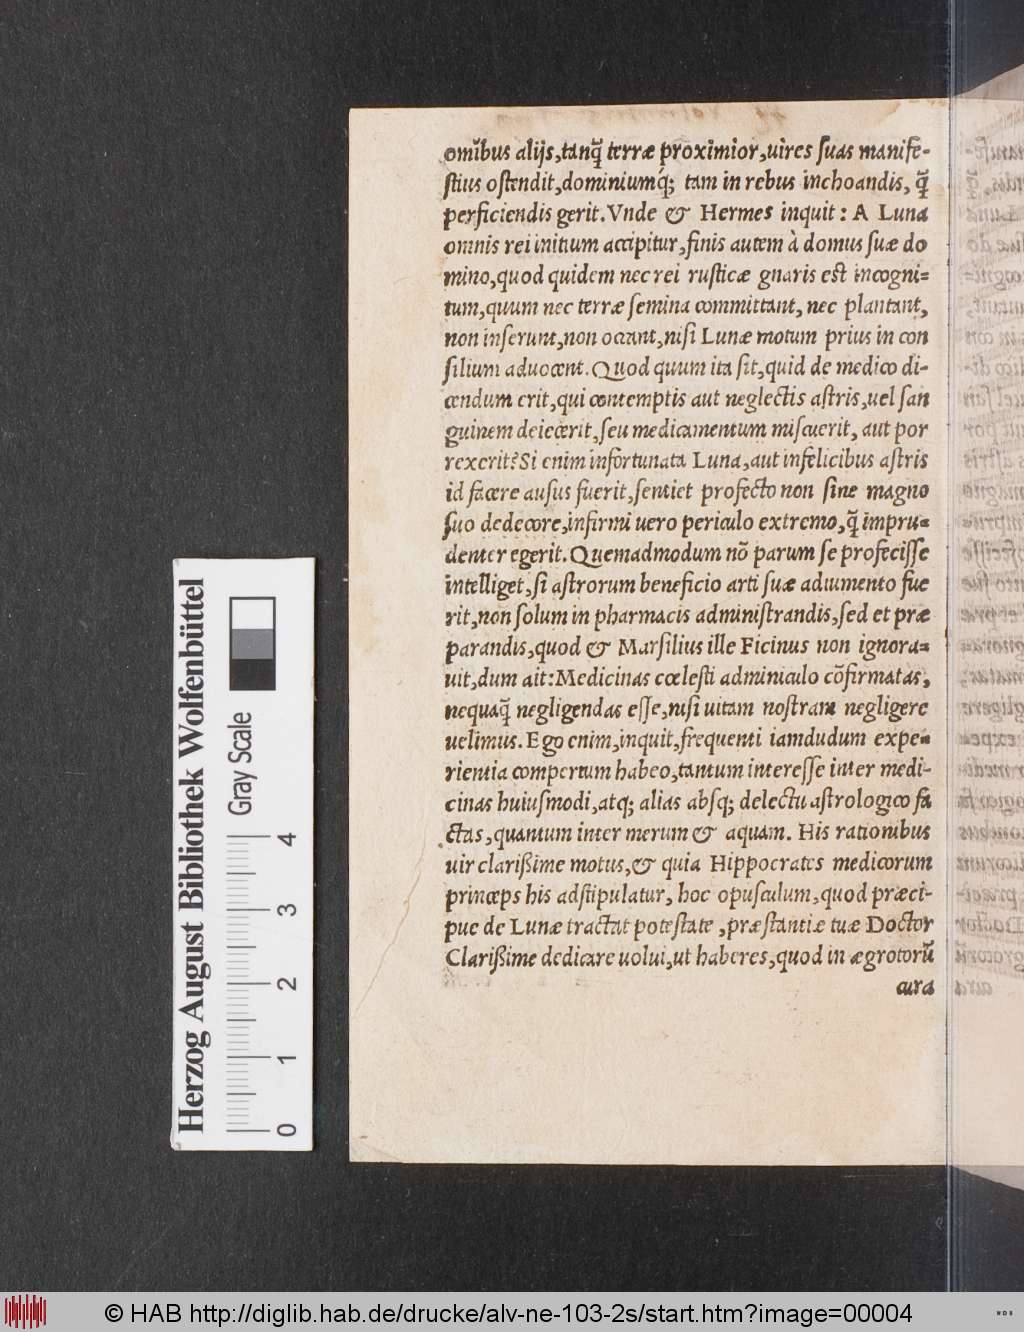 omĩbus alijs,tanq̃ terræ proximior,uires ſuas manife-
ſtius oſtendit,dominiumq́; tam in rebus inchoandis, q̃
perficiendis gerit.Vnde & Hermes inquit: A Luna
omnis rei initium accipitur,finis autem à domus ſuæ do
mino,quod quidem nec rei ruſticæ gnaris est incogni=
tum,quum nec terræ ſemina committant, nec plantant,
non inſerunt,non occant,niſi Lunæ motum prius in con
ſilium aduocent.Quod quum ita ſit,quid de medico di-
cendum erit,qui contemptis aut neglectis aſtris,uel ſan
guinem deiecerit,ſeu medicamentum miſcuerit, aut por
rexerit?Si enim infortunata Luna,aut infelicibus aſtris
id facere auſus fuerit,ſentiet profecto non ſine magno
ſuo dedecore,infirmi uero periculo extremo,q̃ impru=
denter egerit.Quemadmodum nõ parum ſe profeciſſe
intelliget,ſi aſtrorum beneficio arti ſuæ adiumento fue
rit,non ſolum in pharmacis adminiſtrandis,ſed et præ
parandis,quod & Marſilius ille Ficinus non ignora=
uit,dum ait:Medicinas cœleſti adminiculo cõfirmatas,
nequaq̃ negligendas eſſe,niſi uitam noſtram negligere
uelimus.Ego enim,inquit,frequenti iamdudum expe=
rientia compertum habeo,tantum intereſſe inter medi-
cinas huiuſmodi,atq; alias abſq; delectu aſtrologico fa
ctas,quantum inter merum & aquam. His rationibus
uir clarißime motus,& quia Hippocrates medicorum
princeps his adſtipulatur, hoc opuſculum,quod præci-
pue de Lunæ tractat poteſtate ,præſtantiæ tuæ Doctor
Clarißime dedicare uolui,ut haberes,quod in ægrotorũ
cura
Herzog August Bibliothek Wolfenbüttel
Gray Scale
0 1 2 3 4
© HAB http://diglib.hab.de/drucke/alv-ne-103-2s/start.htm?image=00004